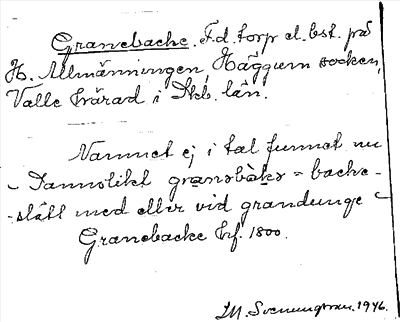 Granebacke. F.d. torp el. bst. på
H. Allmänningen, Häggum socken,
Valle härad i Skb. län.
Namnet ej i tal funnet nu
- Sannolikt gransbaks = backe-
-slätt med eller vid grandunge
Granebacke Erf. 1800.
M. Svenungsson. 1946.